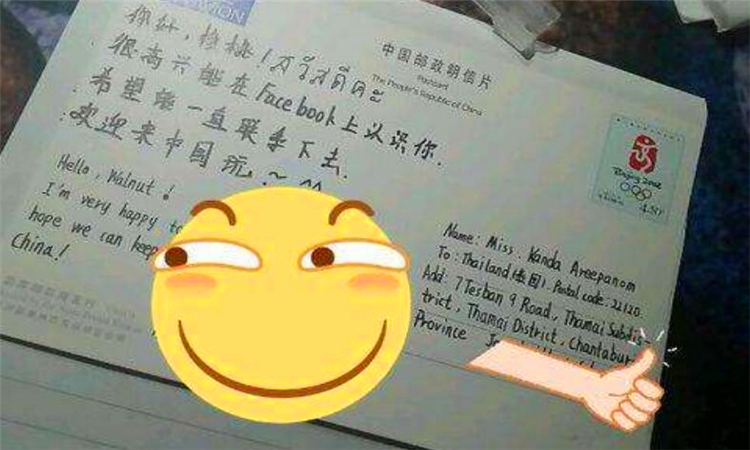 AVION
你好,核桃!สวัสดีค่ะ
很高兴能在Facebook上认识你.
希望能一直联系下去.
欢迎来中国玩.~^^
Hello, Walnut!
I'm very happy to
hope we can keep
China!
中国邮政明信片
Postcard
The People's Republic of China
Beijing 2008
Name: Miss. Kanda Areepanom
To: Thailand(泰国). Postal code: 22120.
Add: 7 Tesban 9 Road, Thamai Subdis-
trict, Thamai District, Chantabur
Province